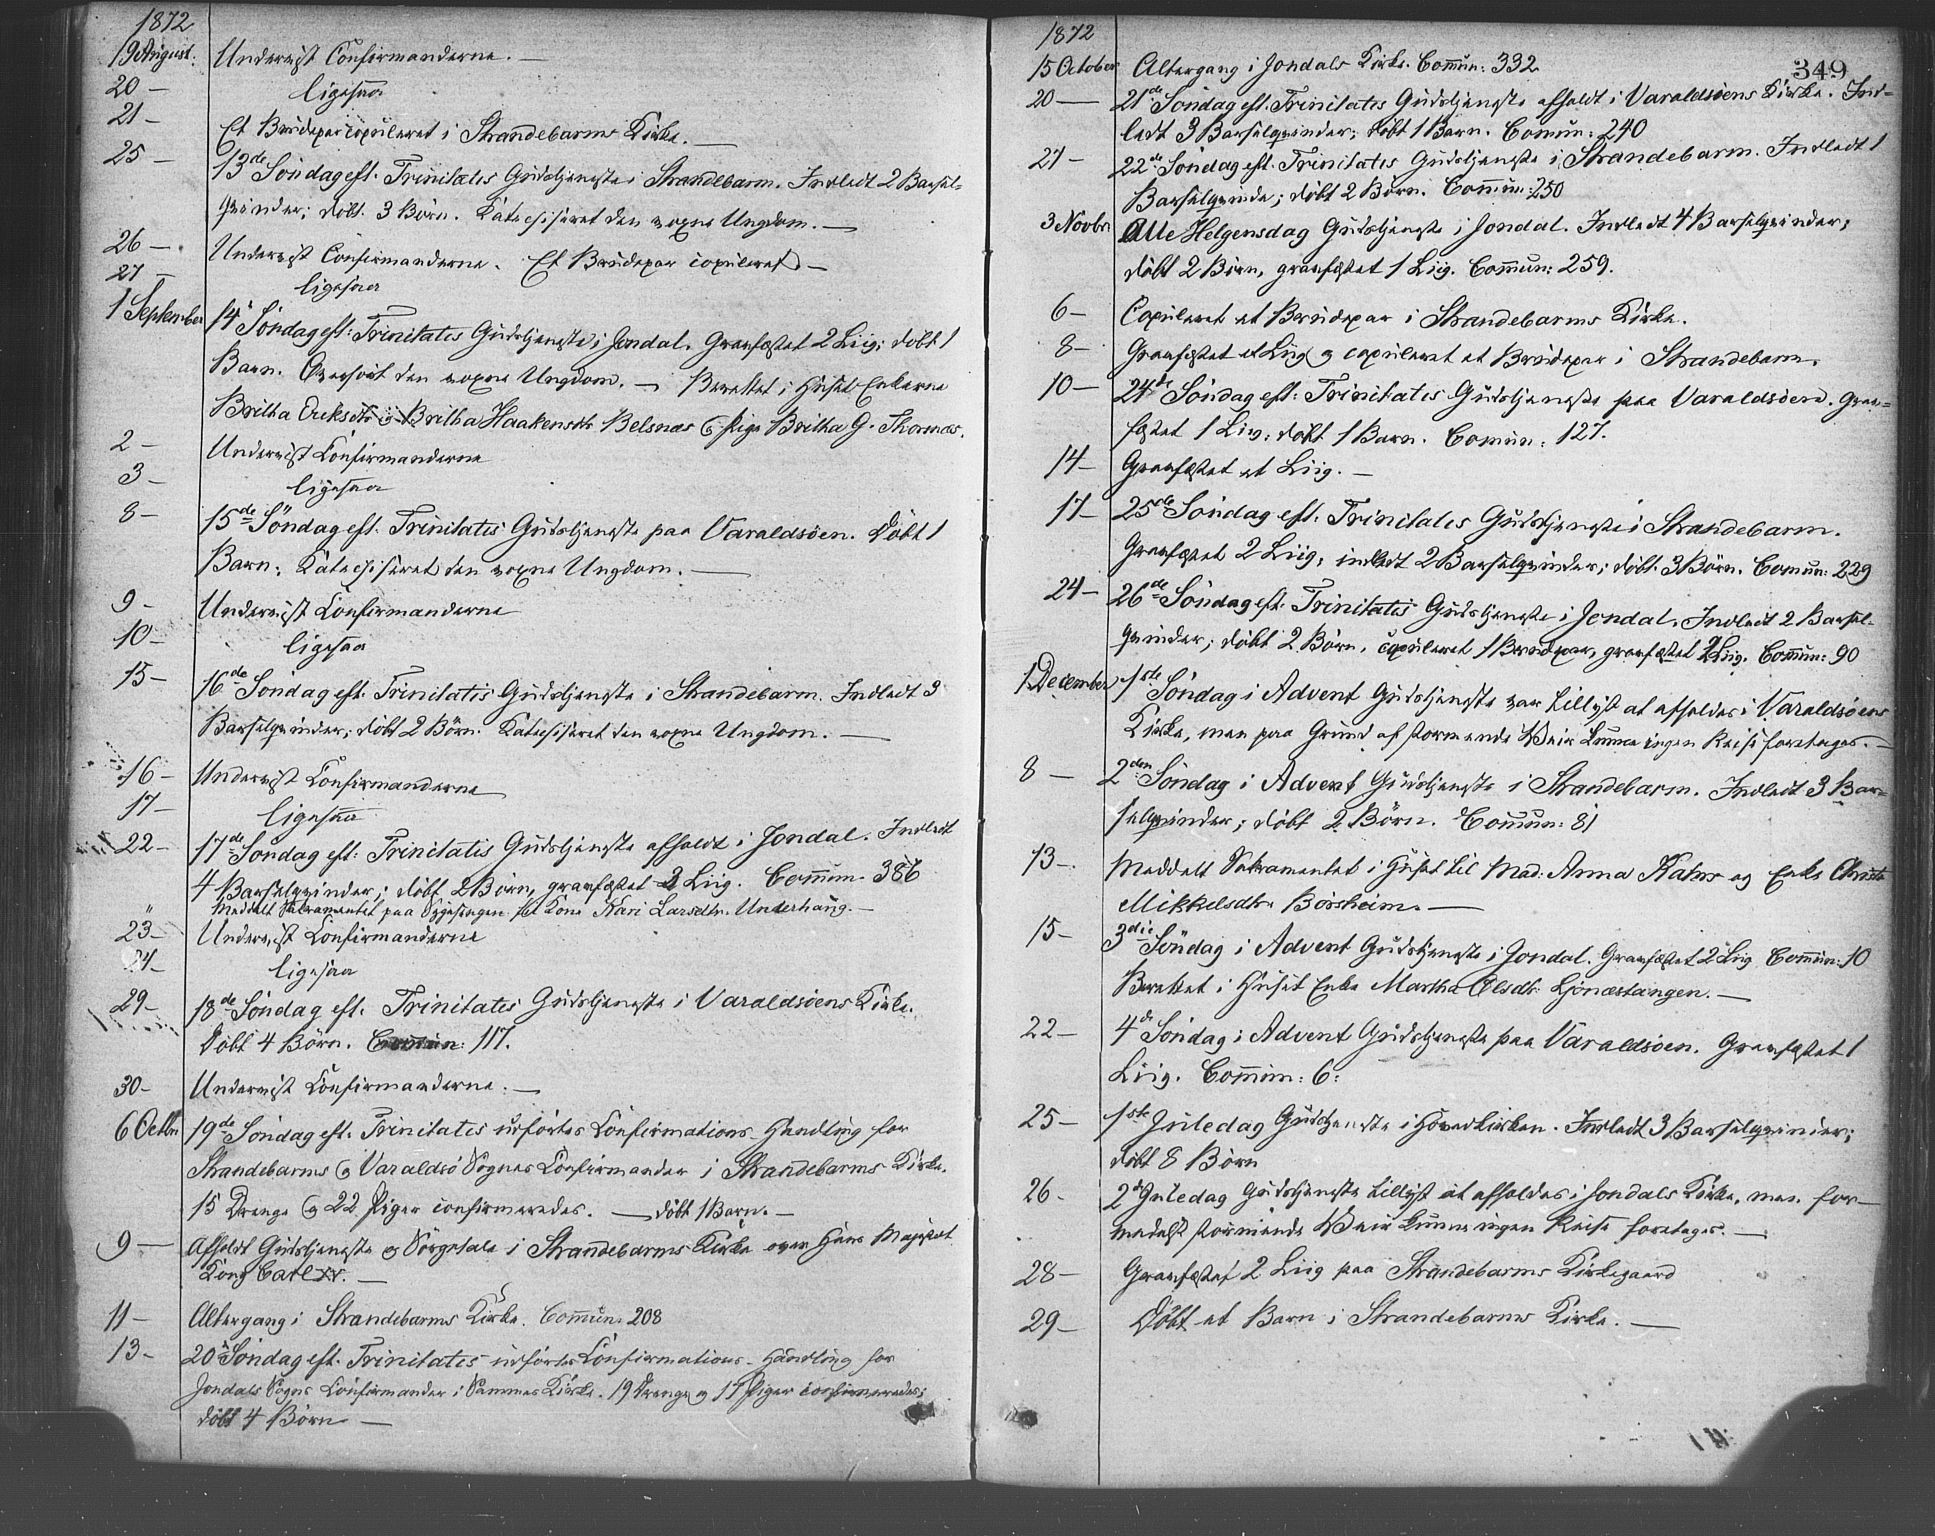 1872
19 August. Underviist Confirmanderne. —
20 — ligesaa
21 — Et Brudepar copuleret i Strandebarms Kirke. —
25 — 13de Söndag eft. Trinitatis Gudstjeneste i Strandebarm. Indledt 2 Barsel-
qvinder; döbt 3 Börn. Katechiseret den voxne Ungdom. —
26 — Underviist Confirmanderne. Et Brudepar copuleret —
27 — ligesaa
1 September 14 Söndag eft: Trinitatis Gudstjeneste i Jondal. Gravfæstet 2 Liig; döbt 1
Barn. Overhört den voxne Ungdom. — Berettet i Huset Enkerne
Britha Ericksdtr og Britha Haakensdtr Belsnæs og Pige Britha G. Thornæs.
2 — Underviist Confirmanderne
3 — ligesaa
8 — 15de Söndag eft. Trinitatis Gudstjeneste paa Varaldsöen. Döbt 1
Barn; Katechiseret den voxne Ungdom. —
9 — Underviist Confirmanderne
10 — ligesaa
15 — 16de Söndag eft. Trinitatis Gudstjeneste i Strandebarm. Indledt 3
Barselqvinder; döbt 2 Börn. Katechiseret den voxne Ungdom. —
16 — Underviist Confirmanderne
17 — ligesaa
22 — 17de Söndag eft: Trinitatis Gudstjeneste afholdt i Jondal. Indledt
4 Barselqvinder; döbt 2 Börn, gravfæstet 2 Liig. Commun. 386
" Meddelt Sakramentet paa Sygesengen til Kone Kari Larsdtr. Underhaug. —
23 — Underviist Confirmanderne
24 — ligesaa
29 — 18de Söndag eft. Trinitatis Gudstjeneste i Varaldsöens Kirke.
Döbt 4 Börn. Commun: 117.
30 — Underviist Confirmanderne. —
6 Octbr. 19de Söndag eft. Trinitatis udförtes Confirmations-Handling for
Strandebarms og Varaldsö Sognes Confirmander i Strandebarms Kirke.
15 Drenge og 22 Piger confirmeredes. — döbt 1 Barn. —
9 — Afholdt Gudstjeneste og Sörgetale i Strandebarms Kirke over Hans Majestæt
Kong Carl XV. —
11 — Altergang i Strandebarms Kirke. Commun. 208
13 — 20 Söndag eft. Trinitatis udförtes Confirmations-Handling for
Jondals Sogns Confirmander i Sammes Kirke. 19 Drenge og 17 Piger confirmeredes;
döbt 4 Börn —
1872
349
15 October Altergang i Jondals Kirke. Commun: 332
20 — 21de Söndag eft. Trinitatis Gudstjeneste afholdt i Varaldsöens Kirke. Ind-
ledt 3 Barselqvinder; döbt 1 Barn. Comun: 240
27 — 22de Söndag eft. Trinitatis Gudstjeneste i Strandebarm. Indledt 1
Barselqvinde; döbt 2 Börn. Commun: 250
3 Novbr. Alle Helgensdag Gudstjeneste i Jondal. Indledt 4 Barselqvinder;
döbt 2 Börn, gravfæstet 1 Liig. Commun: 259.
6 — Copuleret et Brudepar i Strandebarms Kirke.
8 — Gravfæstet et Liig og copuleret et Brudepar i Strandebarm.
10 — 24de Söndag eft: Trinitatis Gudstjeneste paa Varaldsöen. Grav-
fæstet 1 Liig; döbt 1 Barn. Comun: 127.
14 — Gravfæstet et Liig. —
17 — 25de Söndag eft. Trinitatis Gudstjeneste i Strandebarm.
Gravfæstet 2 Liig, indledt 2 Barselqvinder; döbt 3 Börn. Comun: 229
24 — 26de Söndag eft. Trinitatis Gudstjeneste i Jondal. Indledt 2 Barsel-
qvinder; döbt 2 Börn, copuleret 1 Brudepar, gravfæstet 2 Liig. Commun: 90
1 December 1ste Söndag i Advent Gudstjeneste var tillyst at afholdes i Varaldsöens
Kirke, men paa Grund af stormende Veir kunne ingen Reise foretages. —
8 — 2den Söndag i Advent Gudstjeneste i Strandebarm. Indledt 3 Bar-
selqvinder; döbt 2 Börn. Comun: 81
13 — Meddelt Sakramentet i Huset til Mad. Anna Kahrs og Enke Christi
Mikkelsdtr. Börsheim. —
15 — 3die Söndag i Advent Gudstjeneste i Jondal. Gravfæstet 2 Liig Commun: 10
Berettet i Huset Enke Martha Olsdtr Ljönæstangen. —
22 — 4de Söndag i Advent Gudstjeneste paa Varaldsöen. Gravfæstet 1
Liig. Commun: 6:
25 — 1ste Juledag Gudstjeneste i Hovedkirken. Indledt 3 Barselqvinder;
döbt 8 Börn
26 — 2d Juledag Gudstjeneste tillyst at afholdes i Jondals Kirke, men for-
medelst stormende Veir kunne ingen Reise foretages. —
28 — Gravfæstet 2 Liig paa Strandebarms Kirkegaard
29 — Döbt et Barn i Strandebarms Kirke. —